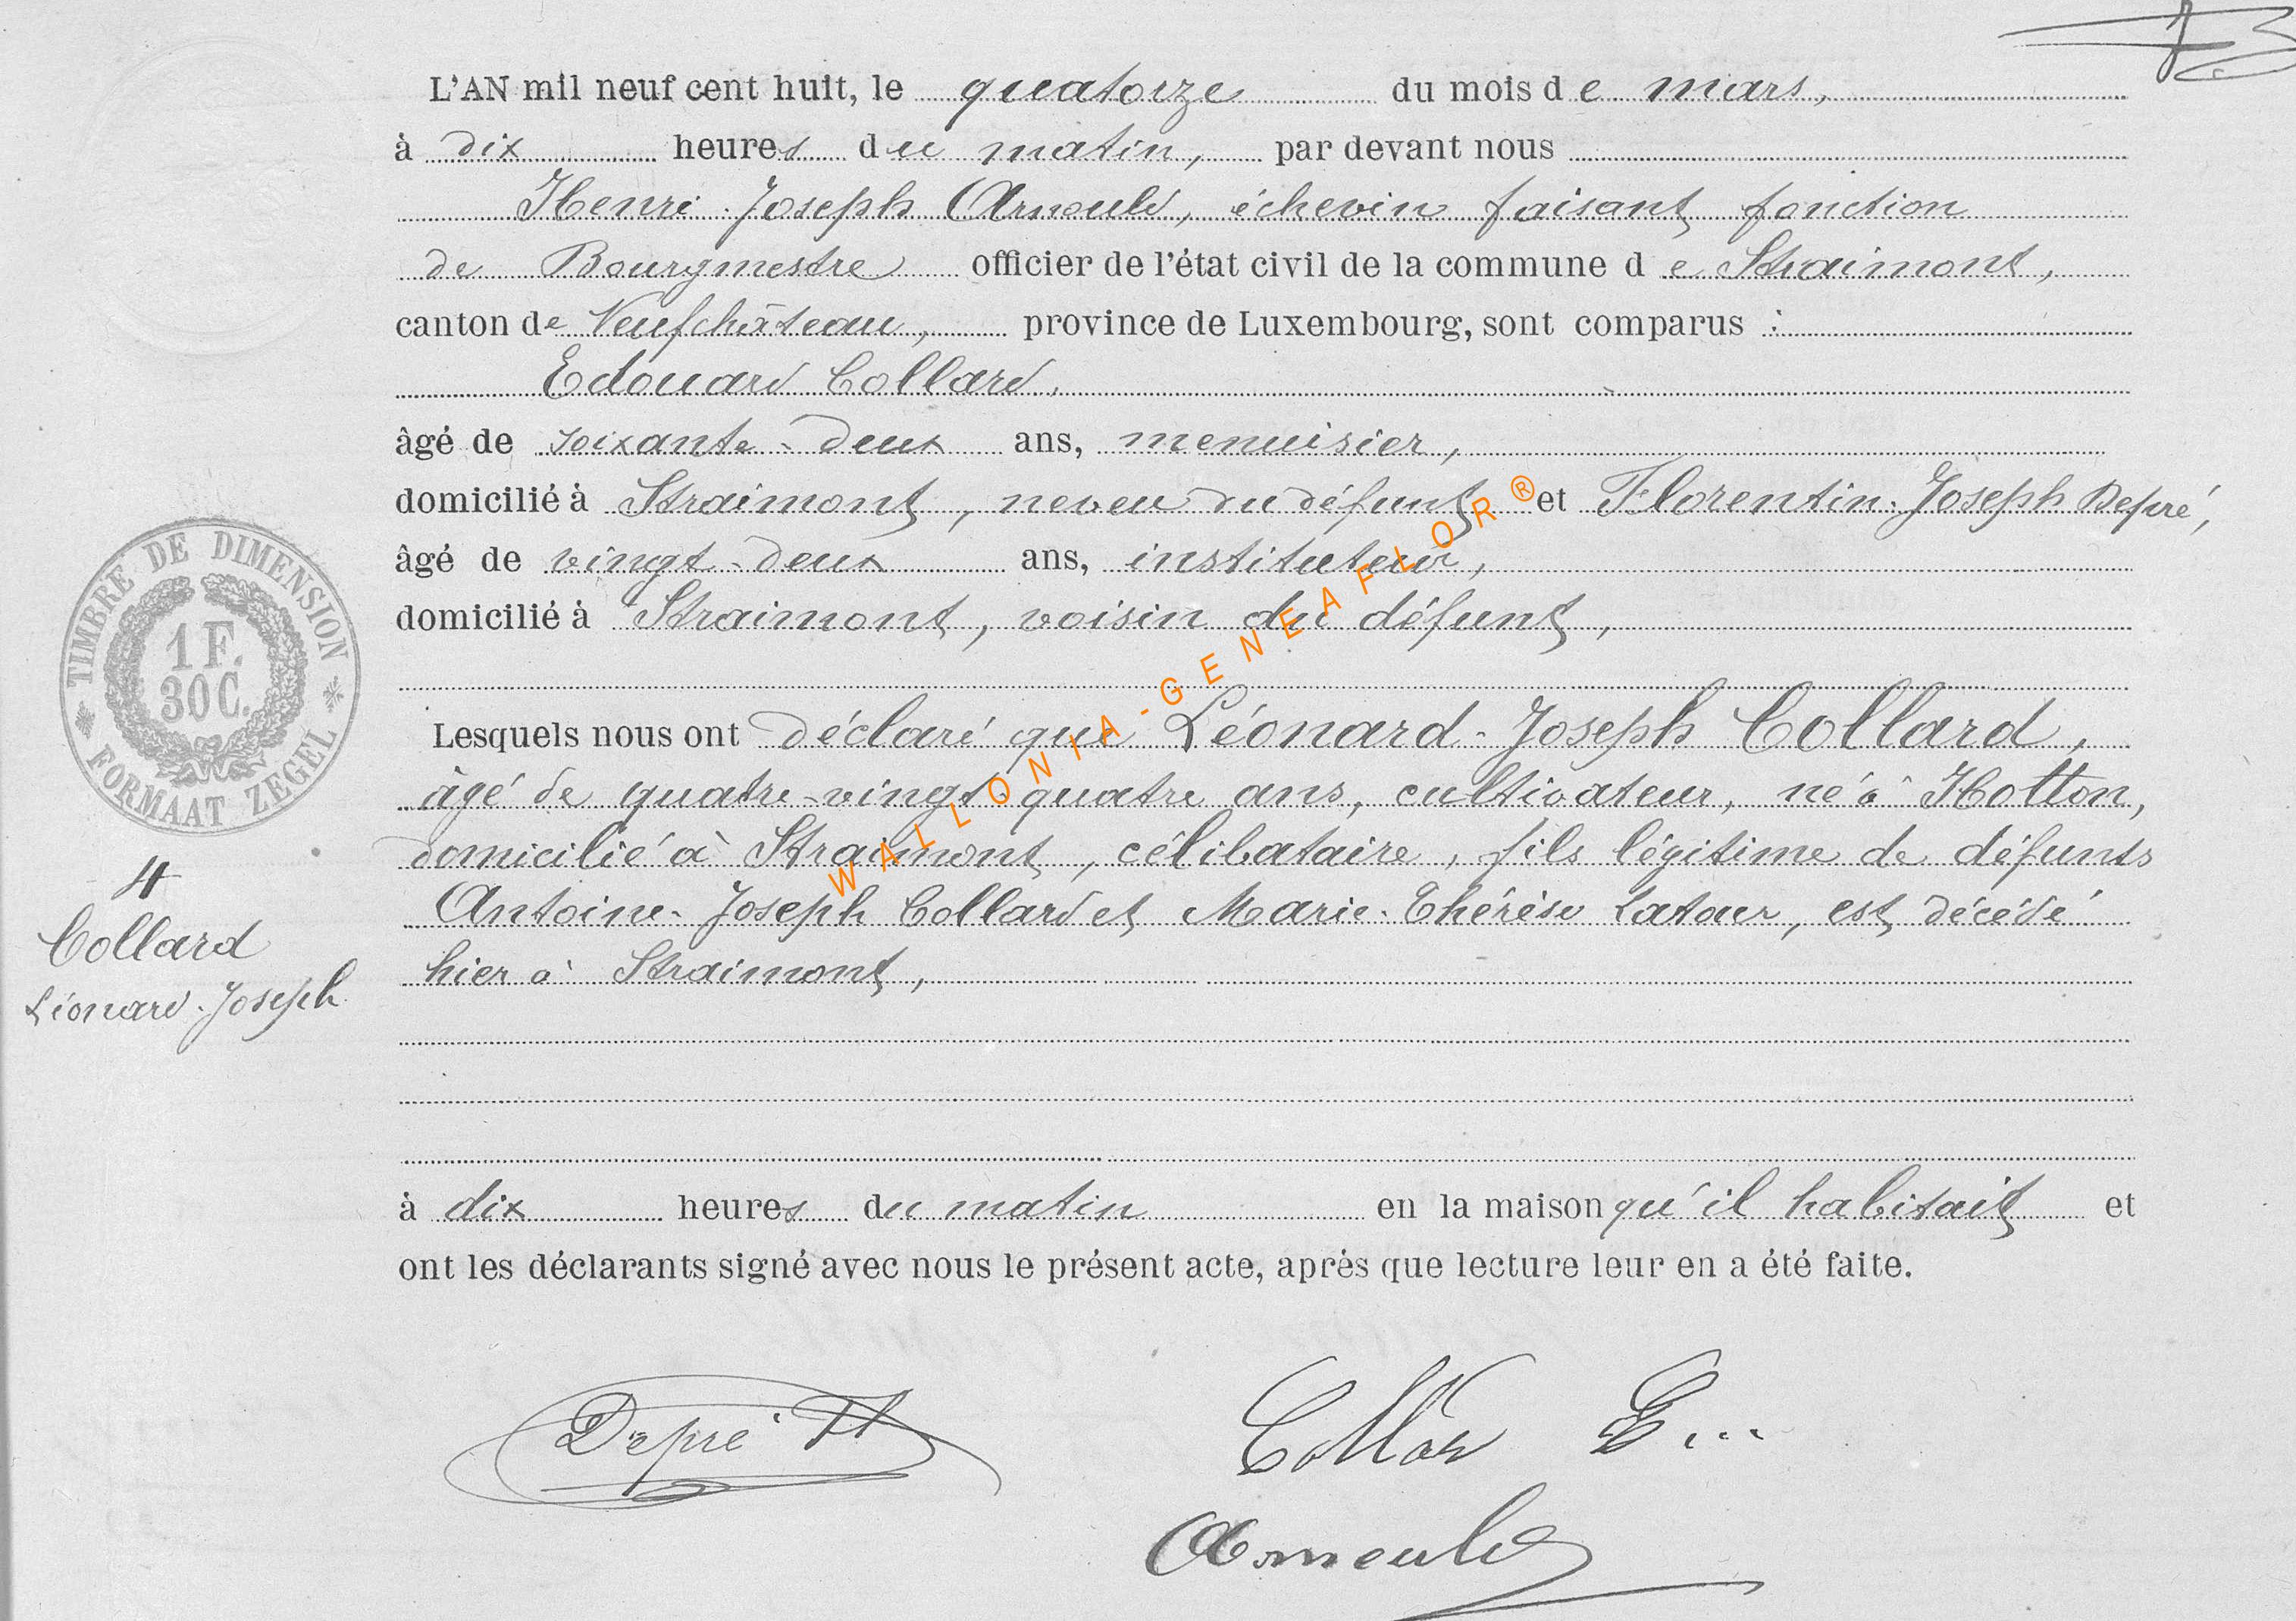 L'AN mil neuf cent huit, le quatorze du mois de mars,
à dix heures du matin, par devant nous
Henri-Joseph Arnould, échevin faisant fonction
de Bourgmestre officier de l'état civil de la commune de Straimont,
canton de Neufchâteau, province de Luxembourg, sont comparus :
Edouard Collard,
âgé de soixante-deux ans, menuisier,
domicilié à Straimont, neveu du défunt et Florentin-Joseph Depré,
âgé de vingt-deux ans, instituteur,
domicilié à Straimont, voisin du défunt,
Lesquels nous ont déclaré que Léonard-Joseph Collard,
âgé de quatre-vingt-quatre ans, cultivateur, né à Hotton,
domicilié à Straimont, célibataire, fils légitime de défunts
Antoine-Joseph Collard et Marie-Thérèse Latour, est décédé
hier à Straimont,
à dix heures du matin en la maison qu'il habitait et
ont les déclarants signé avec nous le présent acte, après que lecture leur en a été faite.
TIMBRE DE DIMENSION
1 F.
30 C.
FORMAAT ZEGEL
4
Collard
Léonard-Joseph
WALLONIA-GENEAFLOR®
Depré Fl
Collar E...
Arnould